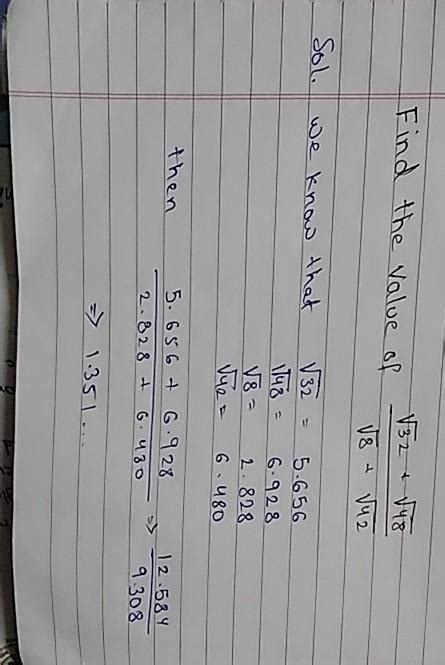 Find the value of √32 + √48 / √8 + √42
Sol. we know that √32 = 5.656
√48 = 6.928
√8 = 2.828
√42 = 6.480
then 5.656 + 6.928 / 2.828 + 6.480 => 12.584 / 9.308
=> 1.351...